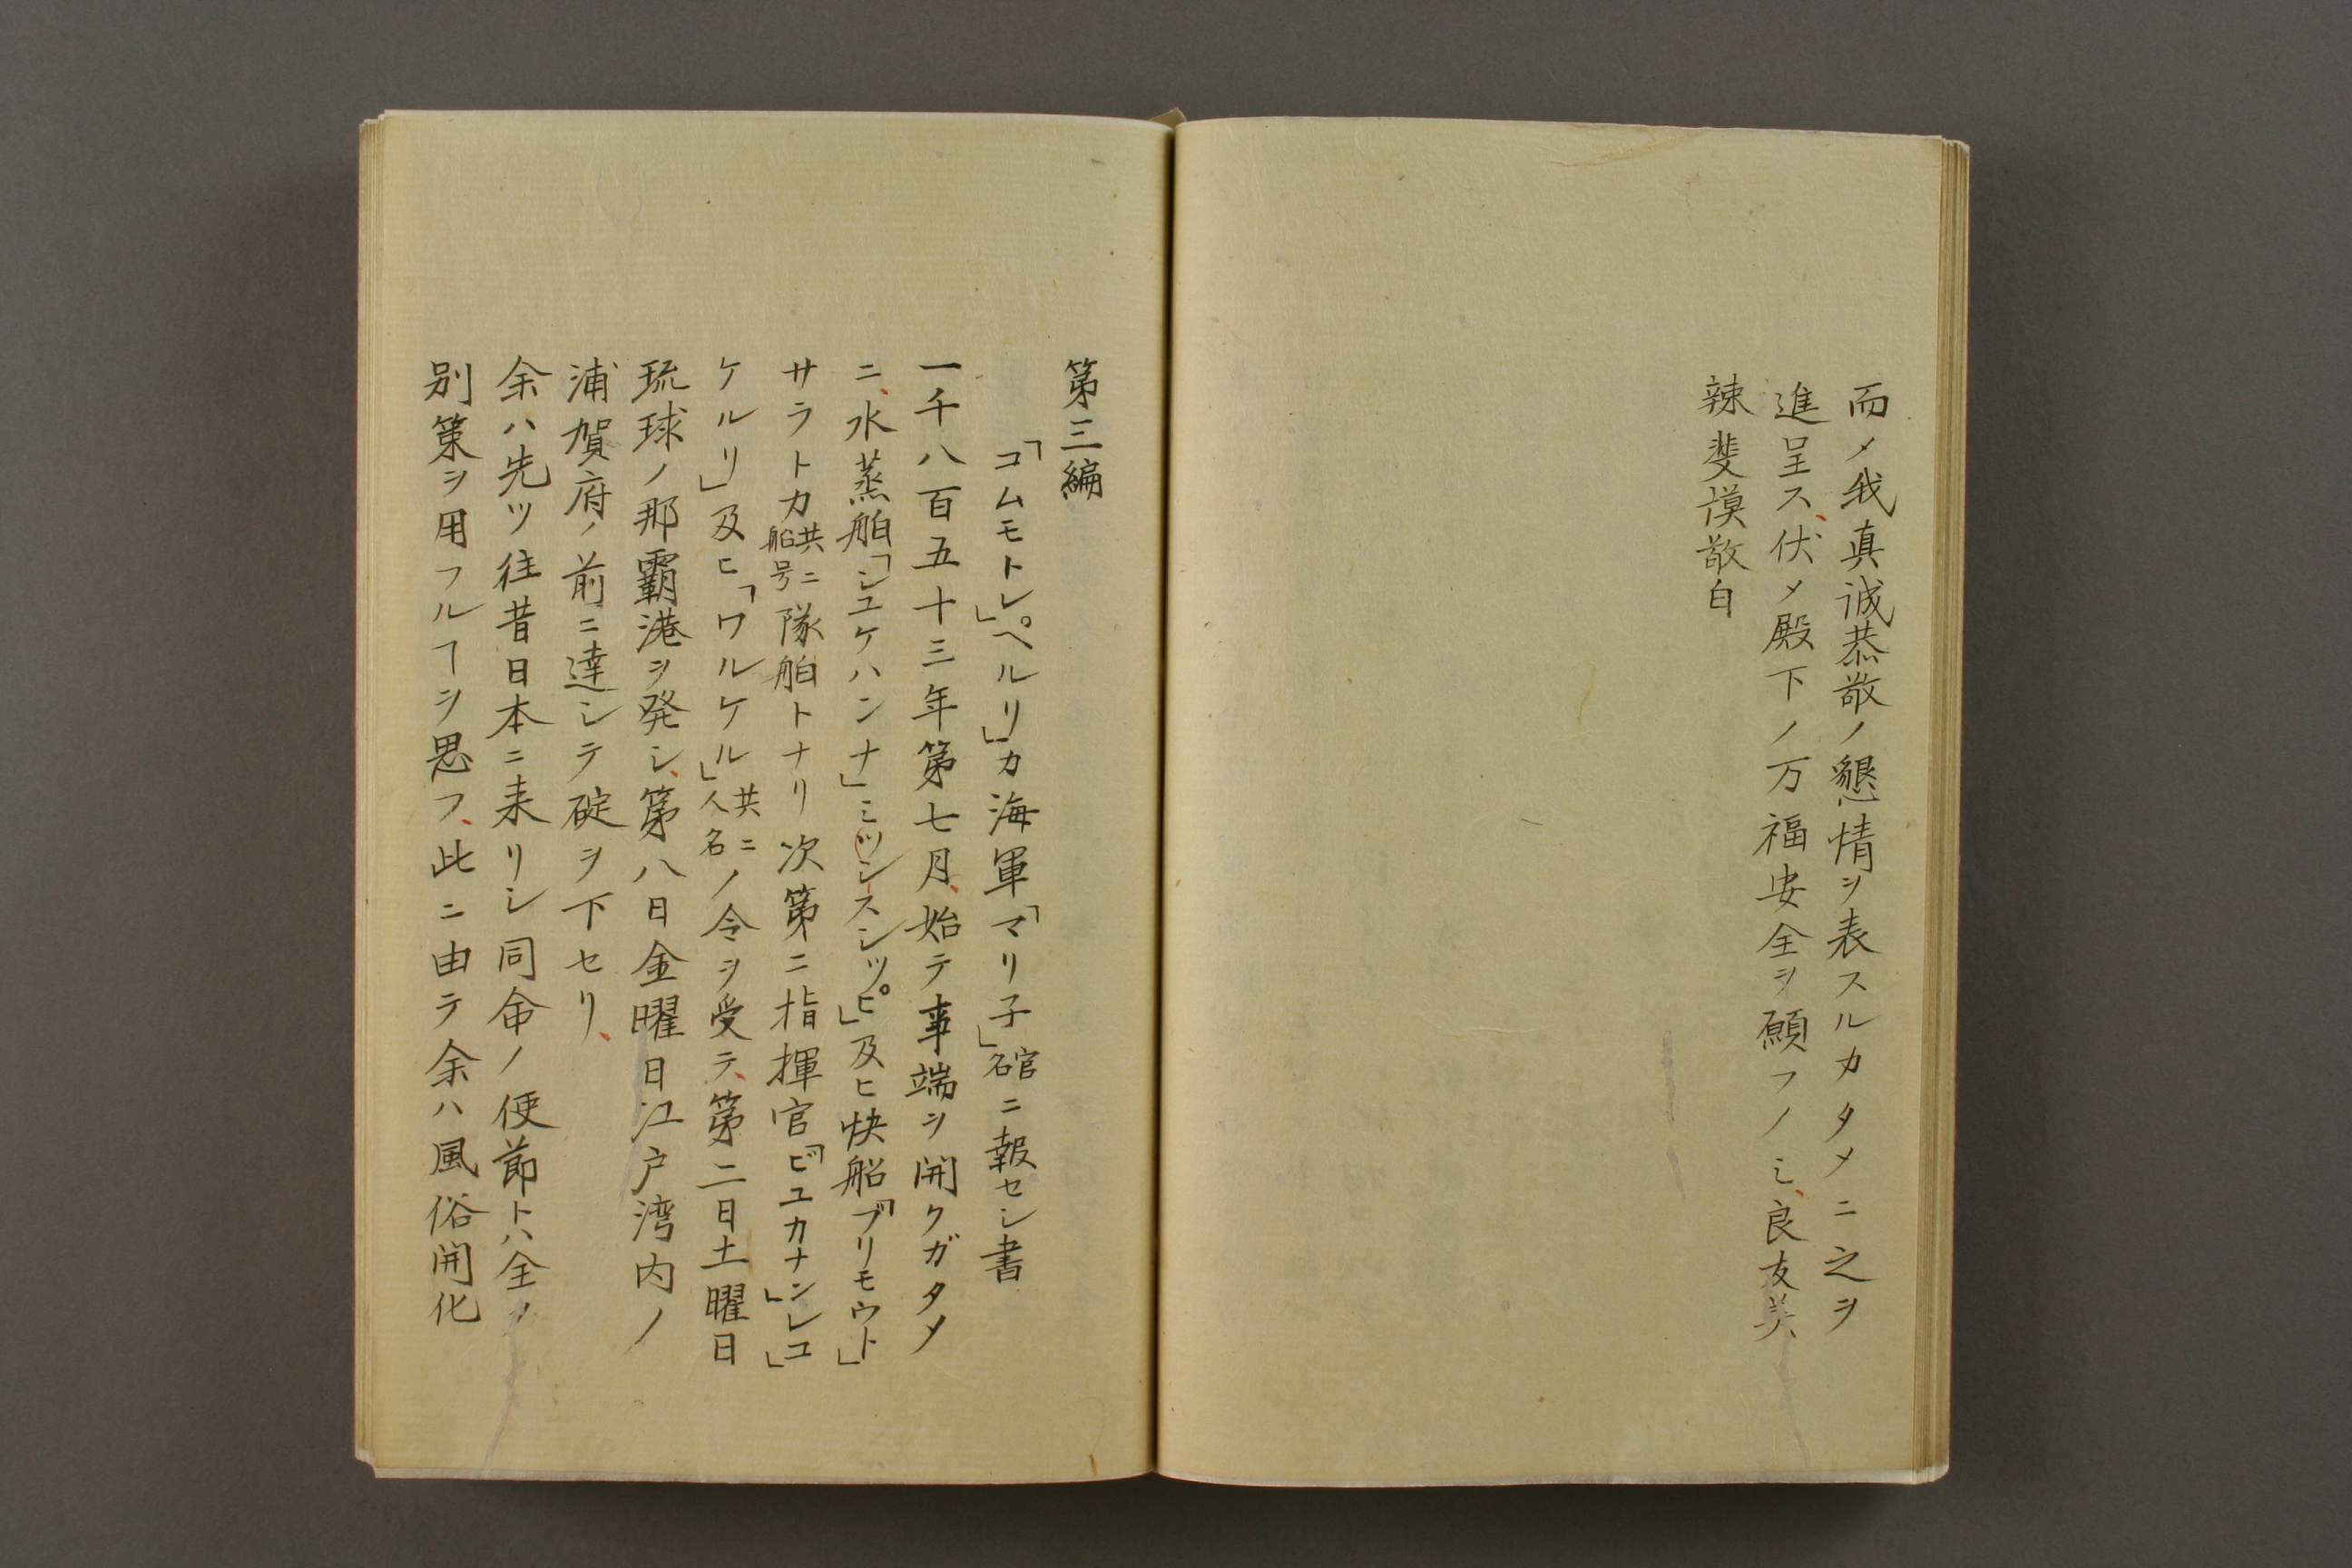 而メ我真誠恭敬ノ懇情ヲ表スルカタメニ之ヲ
進呈ス、伏メ殿下ノ万福安全ヲ願フノミ、良友美
辣斐謨敬白
第三編
「コムモトレ」ペルリ」カ海軍「マリ子」官名ニ報セシ書
一千八百五十三年第七月、始テ事端ヲ開クガタメ
ニ、水蒸舶「シユケハンナ」ミツシスシツピ」及ヒ快船「プリモウト」
サラトカ共ニ船号隊舶トナリ次第ニ指揮官「ビユカナン」レユ」
ケルリ」及ヒ「ワルケル」共ニ人名ノ令ヲ受テ、第二日土曜日
琉球ノ那覇港ヲ発シ、第八日金曜日江戸湾内ノ
浦賀府ノ前ニ達シテ碇ヲ下セリ、
余ハ先ツ往昔日本ニ来リシ同命ノ使節トハ全ノ
別策ヲ用フルヿヲ思フ、此ニ由テ余ハ風俗開化